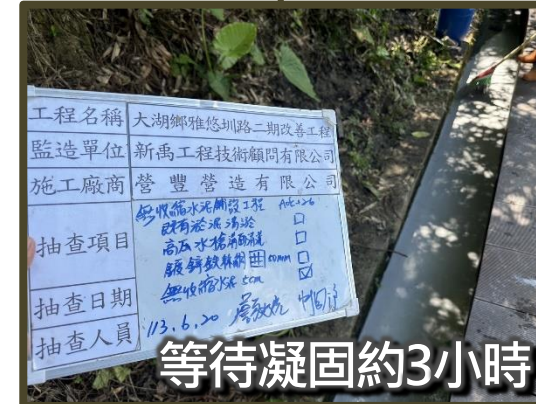 工程名稱 大湖鄉雅悠圳路二期改善工程
監造單位 新禹工程技術顧問有限公司
施工廠商 營豐營造有限公司
抽查項目 無收縮水泥舖設工程
既有淤泥清淤 □
高压水槍清洗 □
鍍鋅鋼絲網 50mm □
無收縮水泥 5cm ☑
抽查日期 113.6.20
抽查人員
等待凝固約3小時